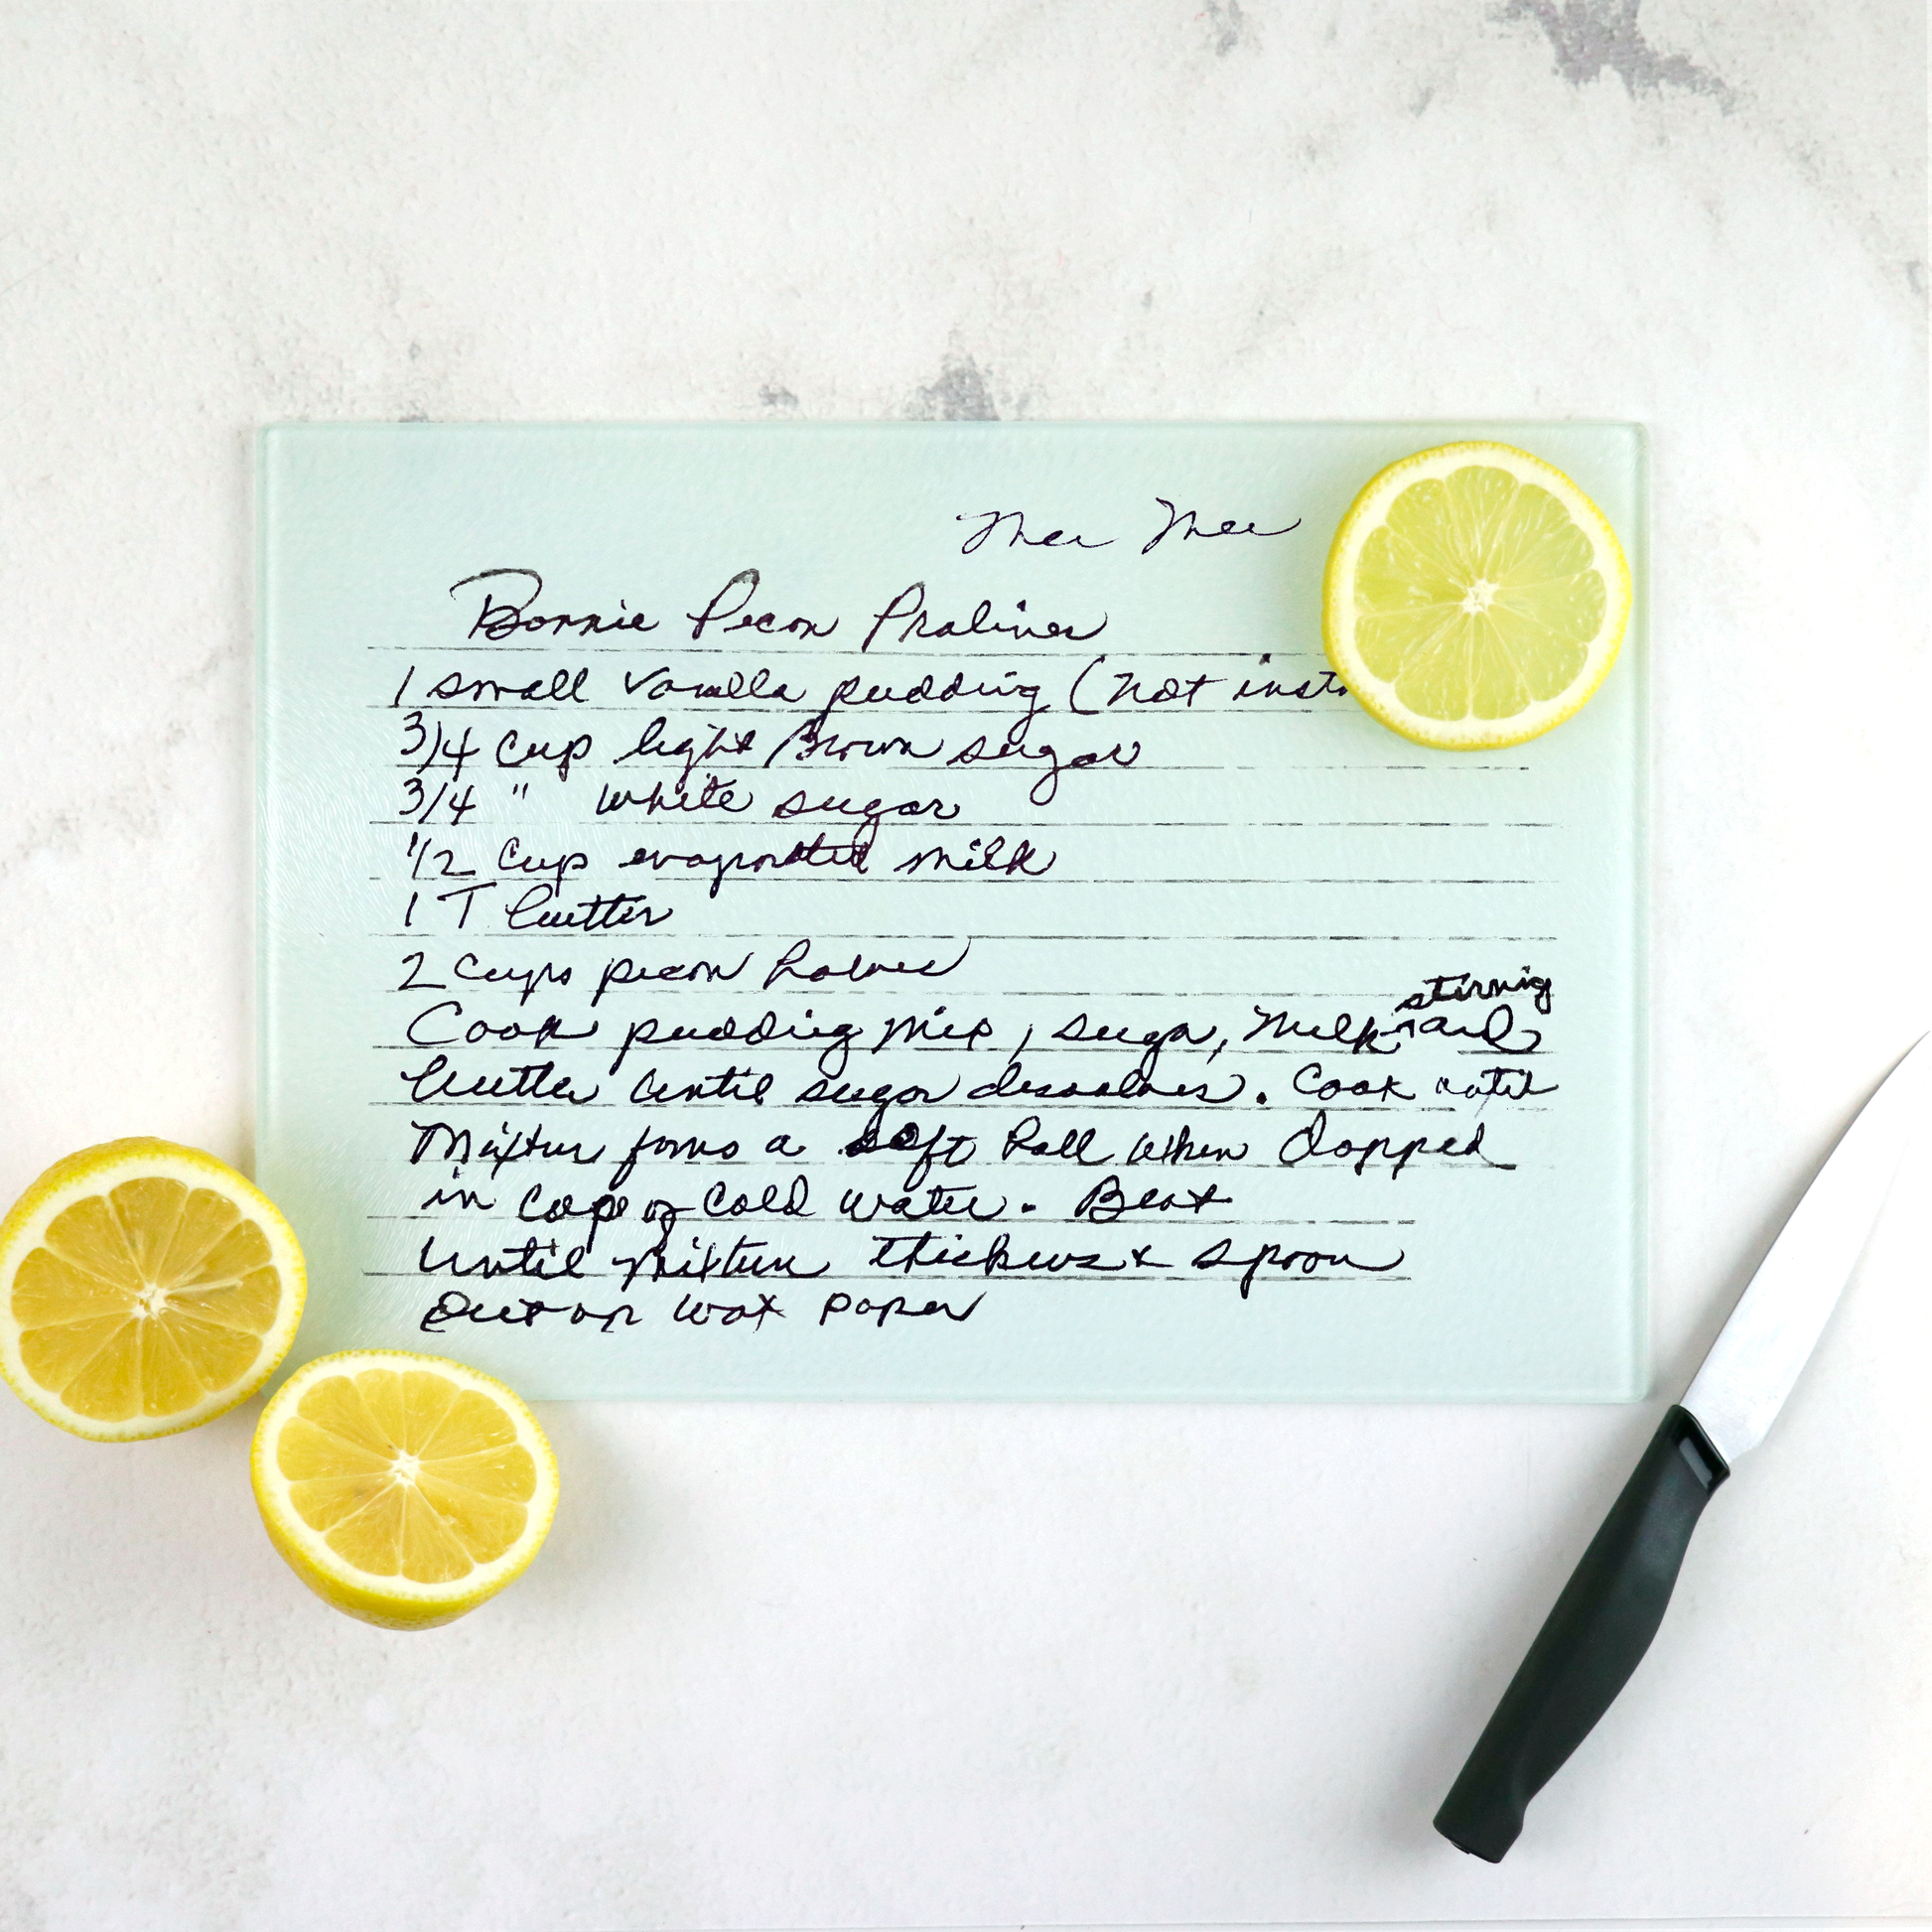 Mee Mee
Bonnie Pecan Pralines
1 small vanilla pudding (not inst
3/4 cup light Brown sugar
3/4 " white sugar
1/2 cup evaporated milk
1 T butter
2 cups pecan halves
stirring
Cook pudding mix, suga, milk ^ and
butter until sugar dissolves. Cook until
Mixture forms a soft ball when dropped
in cope of cold water. Beat
until mixture thickens & spoon
out on wax paper